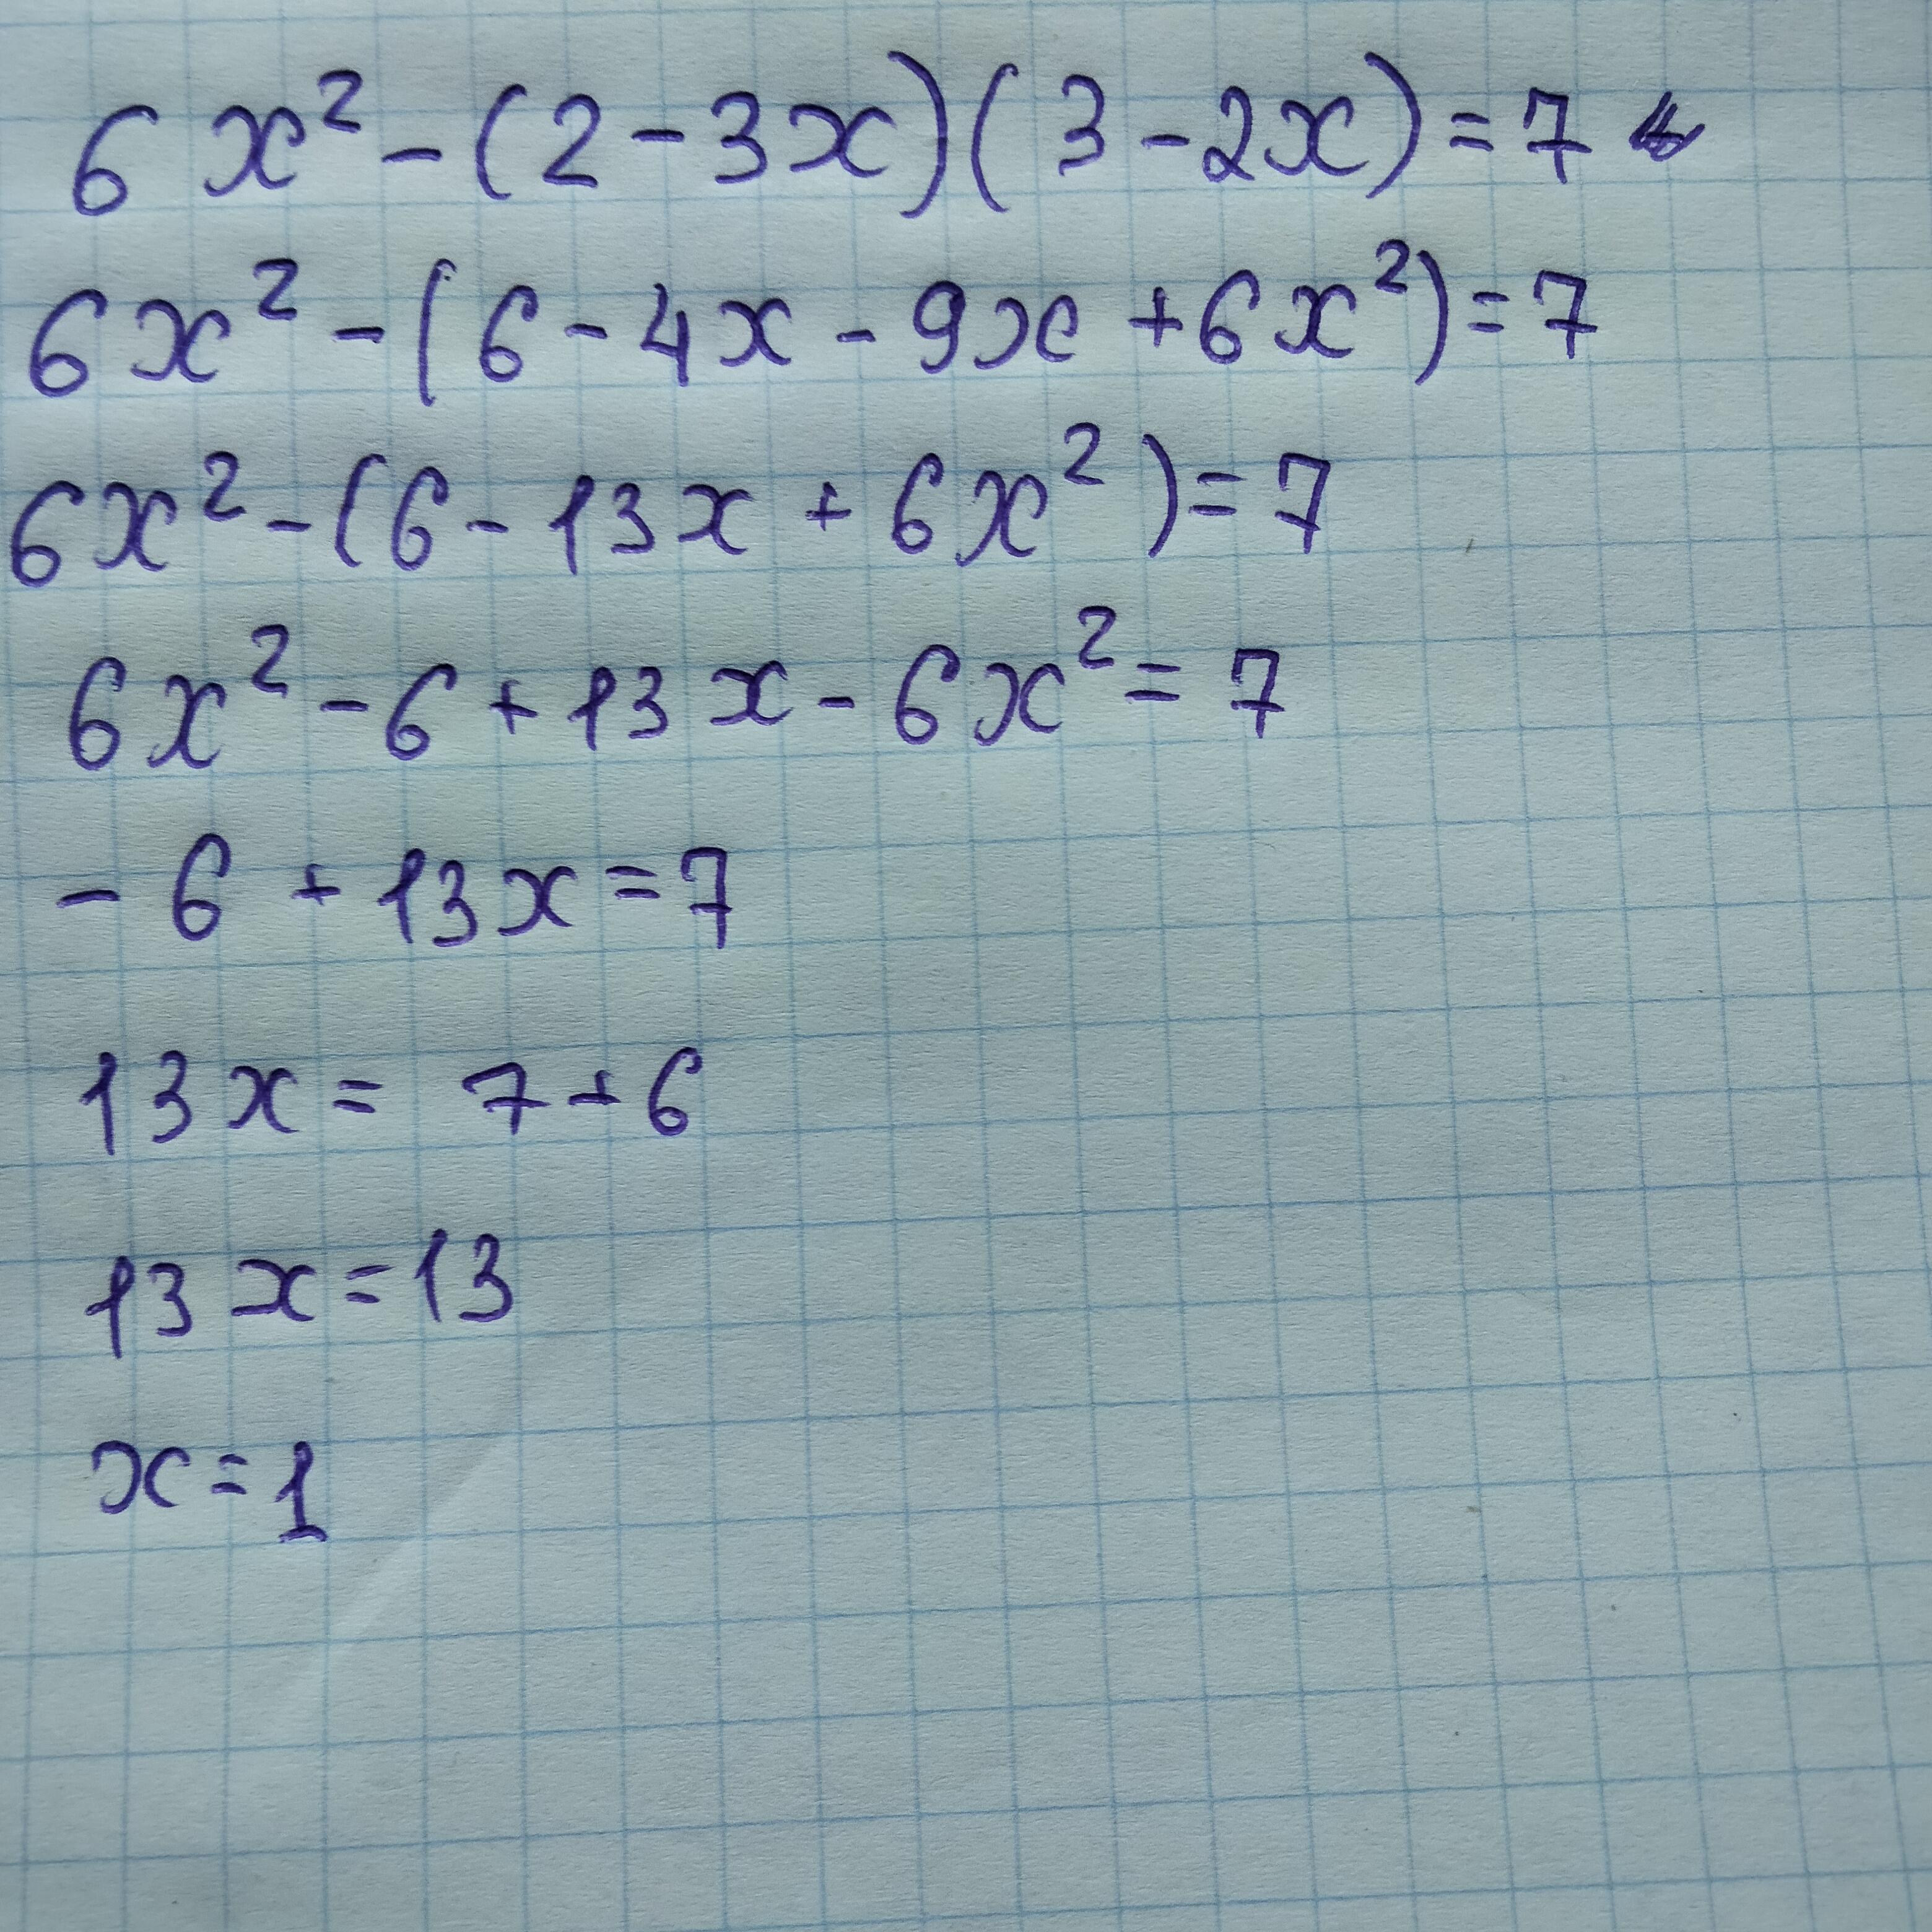 6x² - (2 - 3x)(3 - 2x) = 7
6x² - (6 - 4x - 9x + 6x²) = 7
6x² - (6 - 13x + 6x²) = 7
6x² - 6 + 13x - 6x² = 7
- 6 + 13x = 7
13x = 7 + 6
13x = 13
x = 1